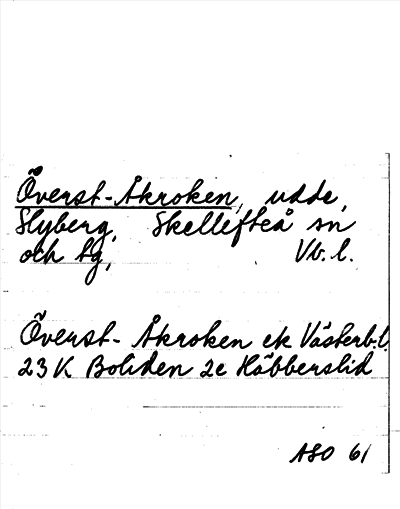 Överst-Åkroken, udde,
Slyberg, Skellefteå sn
och tg, Vb.l.
Överst- Åkroken ek Västerb.l.
23 K Boliden 2e Häbberslid
ASO 61